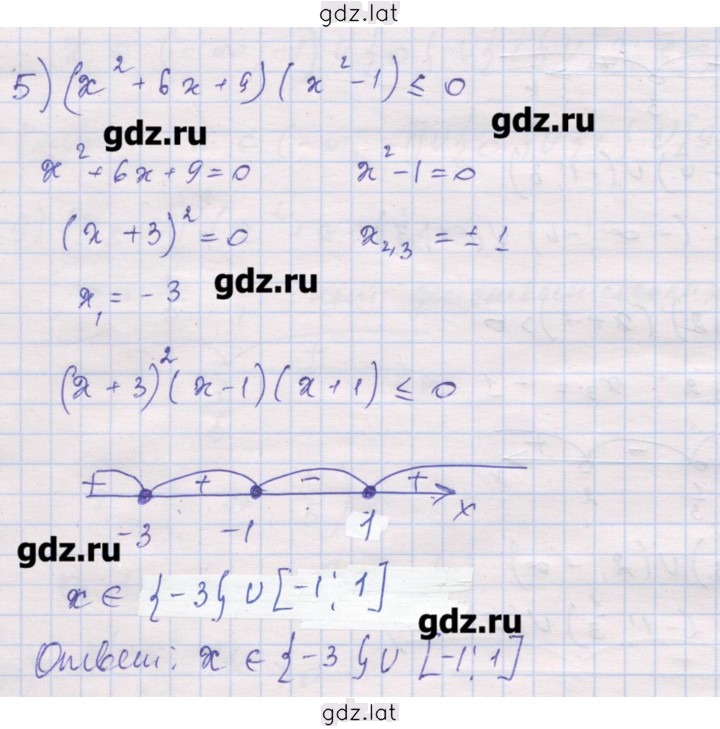 gdz.lat
5) (x² + 6x + 9)(x² - 1) ≤ 0
gdz.ru
gdz.ru
x² + 6x + 9 = 0 x² - 1 = 0
(x + 3)² = 0 x₂,₃ = ± 1
x₁ = - 3
gdz.ru
(x + 3)²(x - 1)(x + 1) ≤ 0
+ + - + x
-3 -1 1
gdz.ru
x ∈ {-3} ∪ [-1; 1]
gdz.ru
Ответ: x ∈ {-3} ∪ [-1; 1]
gdz.lat